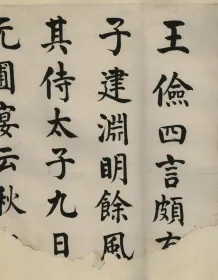 王儉四言頗有
子建淵明餘風
其侍太子九日
元圃宴云秋